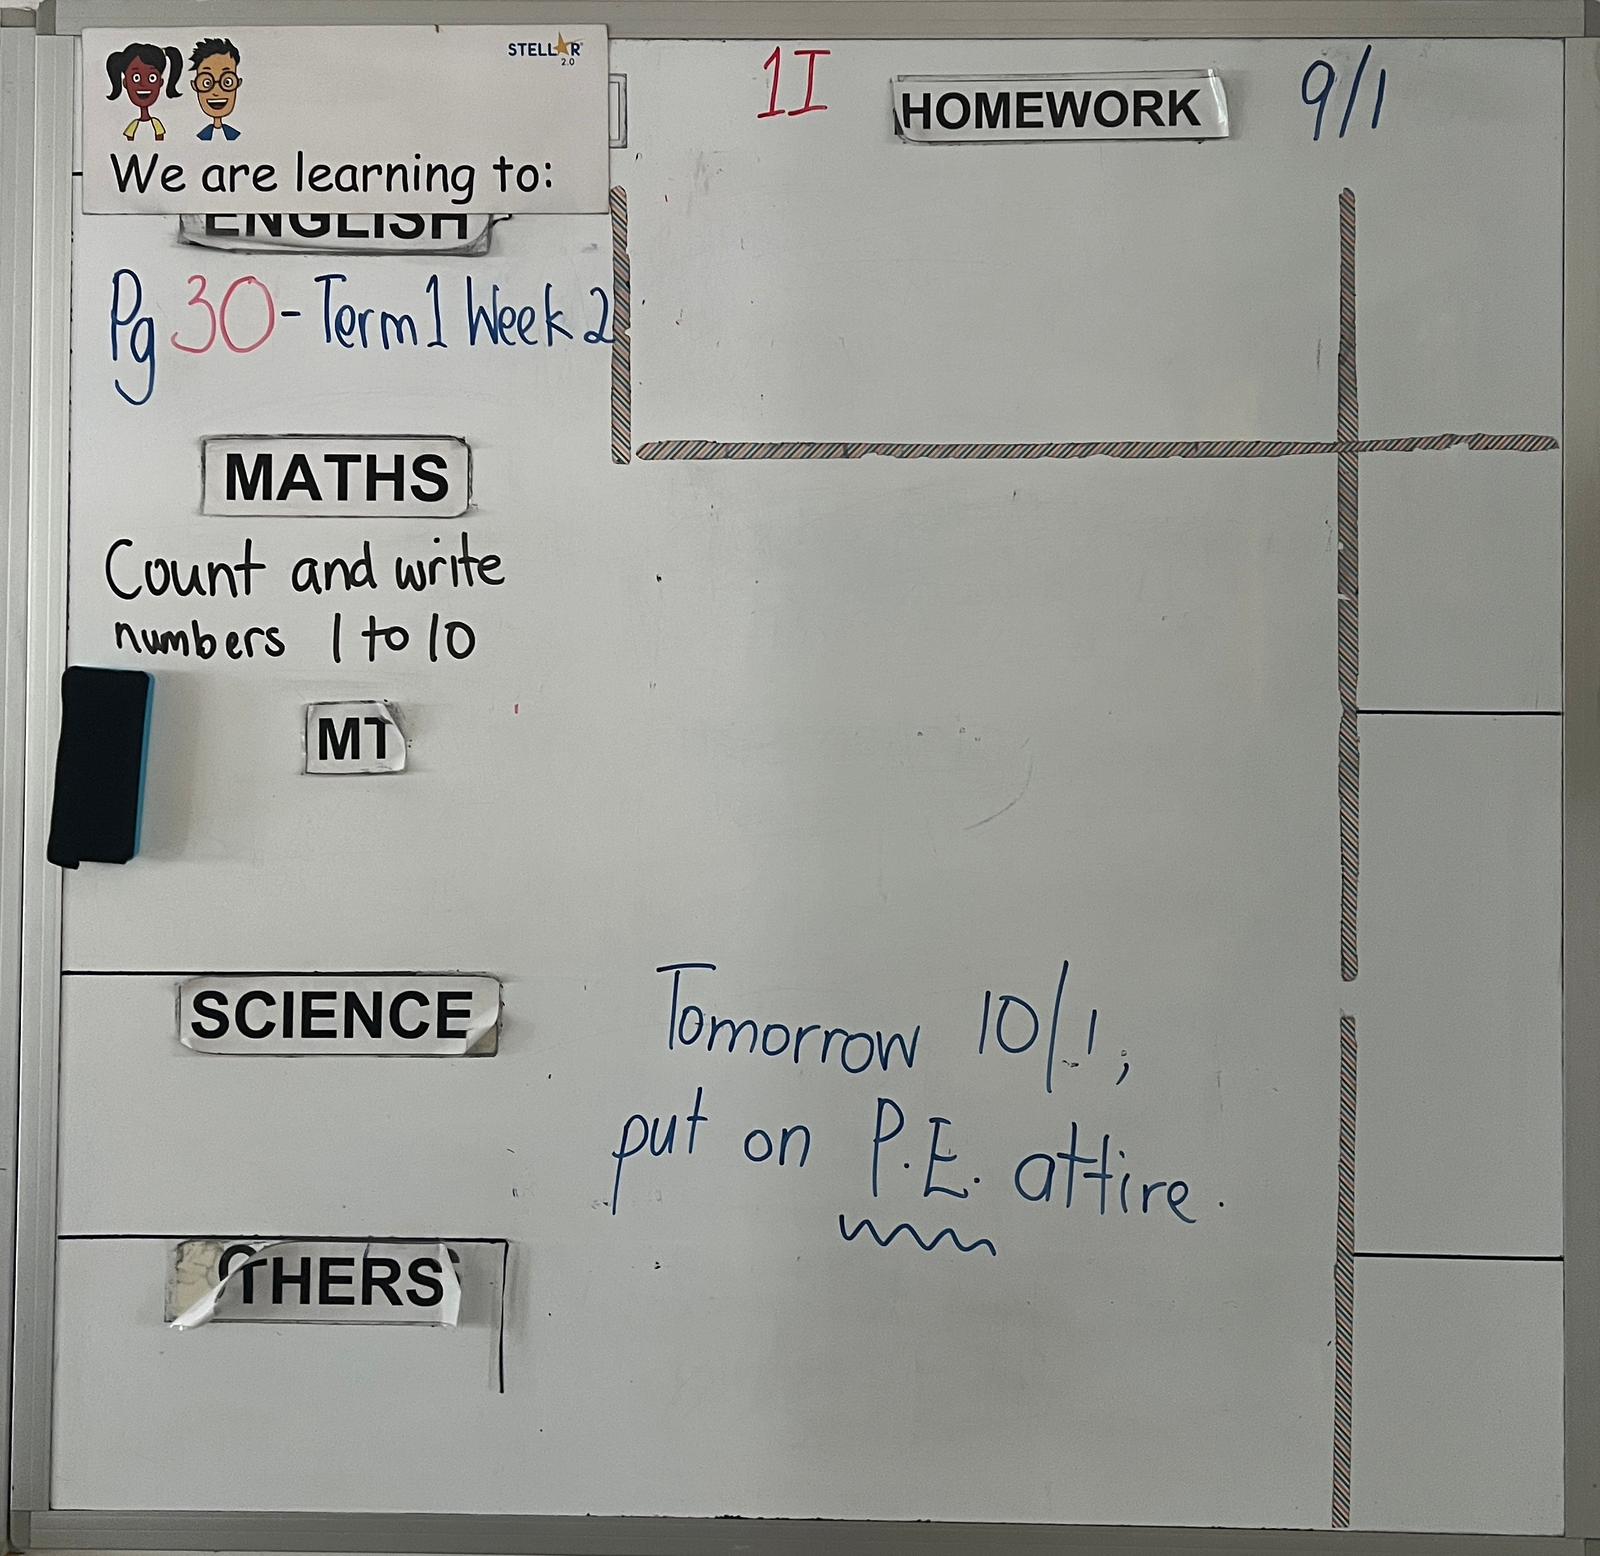 STELLAR
2.0
We are learning to:
1I
HOMEWORK
9/1
ENGLISH
Pg 30 - Term 1 Week 2
MATHS
Count and write
numbers 1 to 10
MT
SCIENCE
Tomorrow 10/1,
put on P.E. attire.
OTHERS